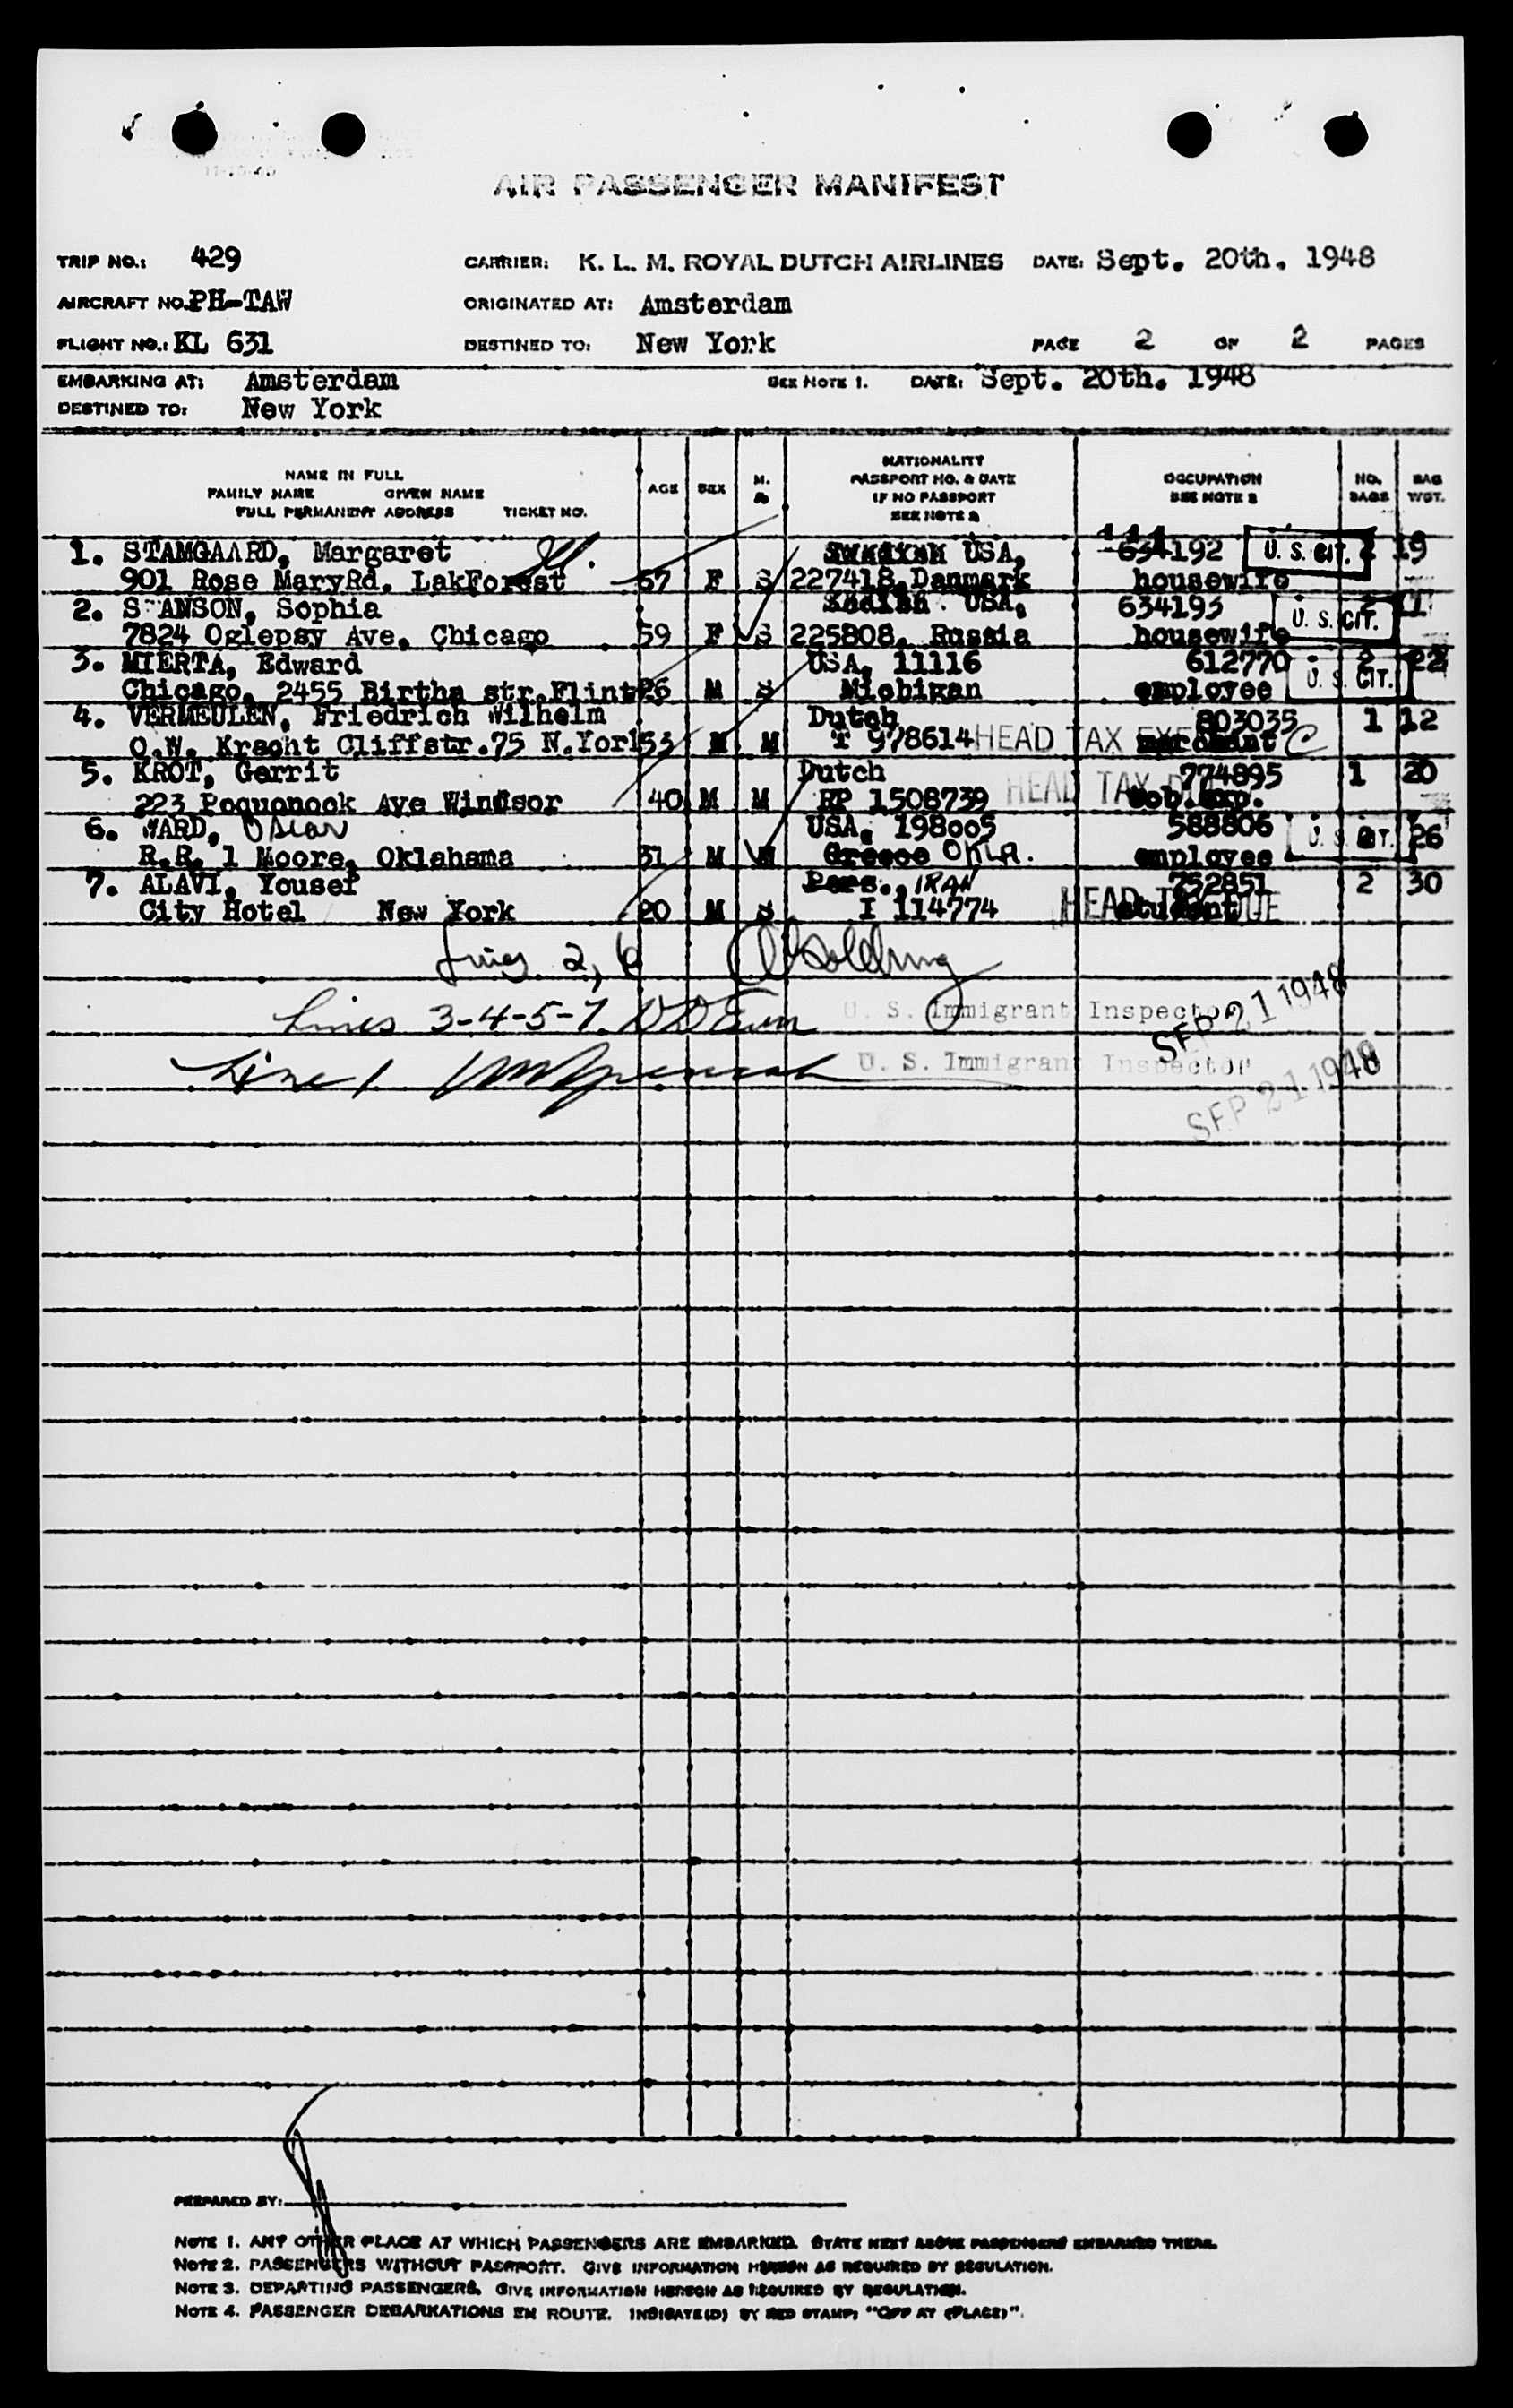 AIR PASSENGER MANIFEST
TRIP NO.: 429 CARRIER: K. L. M. ROYAL DUTCH AIRLINES DATE: Sept. 20th. 1948
AIRCRAFT NO. PH-TAW ORIGINATED AT: Amsterdam
FLIGHT NO.: KL 631 DESTINED TO: New York PAGE 2 OF 2 PAGES
EMBARKING AT: Amsterdam SEE NOTE 1. DATE: Sept. 20th. 1948
DESTINED TO: New York
NAME IN FULL
FAMILY NAME GIVEN NAME
FULL PERMANENT ADDRESS TICKET NO.
AGE SEX M.
NATIONALITY
PASSPORT NO. & DATE
IF NO PASSPORT
SEE NOTE 2
OCCUPATION
SEE NOTE 3
NO.
BAGS
BAG
WGT.
1. STAMGAARD, Margaret USA, 634192 U. S. CIT. 2 19
901 Rose MaryRd. LakForest 57 F S 227418, Danmark housewife
2. S ANSON, Sophia USA, 634193 U. S. CIT. 2
7824 Oglepsy Ave. Chicago 59 F S 225808, Russia housewife
3. MIERTA, Edward USA, 11116 612770 2 22
Chicago, 2455 Birtha str.Flint 26 M S Michigan employee U. S. CIT.
4. VERMEULEN, Friedrich Wilhelm Dutch 803035 1 12
O.W. Kracht Cliffstr.75 N.Yor 53 M M T 978614 HEAD TAX C
5. KROT, Gerrit Dutch 774895 1 20
223 Poquonock Ave Windsor 40 M M RP 1508739 HEAD TAX
6. WARD, Oscar USA, 198005 588806 U. S. CIT. 2 26
R.R. 1 Moore, Oklahama 31 M M Greece OKLA. employee
7. ALAVI, Yousef Pers., IRAN 752851 2 30
City Hotel New York 20 M S I 114774 HEAD student
Lines 2, 6
Lines 3-4-5-7 U. S. Immigrant Inspector SEP 21 1948
Line 1 U. S. Immigrant Inspector
SEP 21 1948
PREPARED BY:
NOTE 1. ANY OTHER PLACE AT WHICH PASSENGERS ARE EMBARKED. STATE NEXT ABOVE PASSENGERS EMBARKED THERE.
NOTE 2. PASSENGERS WITHOUT PASSPORT. GIVE INFORMATION HEREON AS REQUIRED BY REGULATION.
NOTE 3. DEPARTING PASSENGERS. GIVE INFORMATION HEREON AS REQUIRED BY REGULATION.
NOTE 4. PASSENGER DEBARKATIONS EN ROUTE. INDICATE(D) BY RED STAMP, "OFF AT (PLACE)".